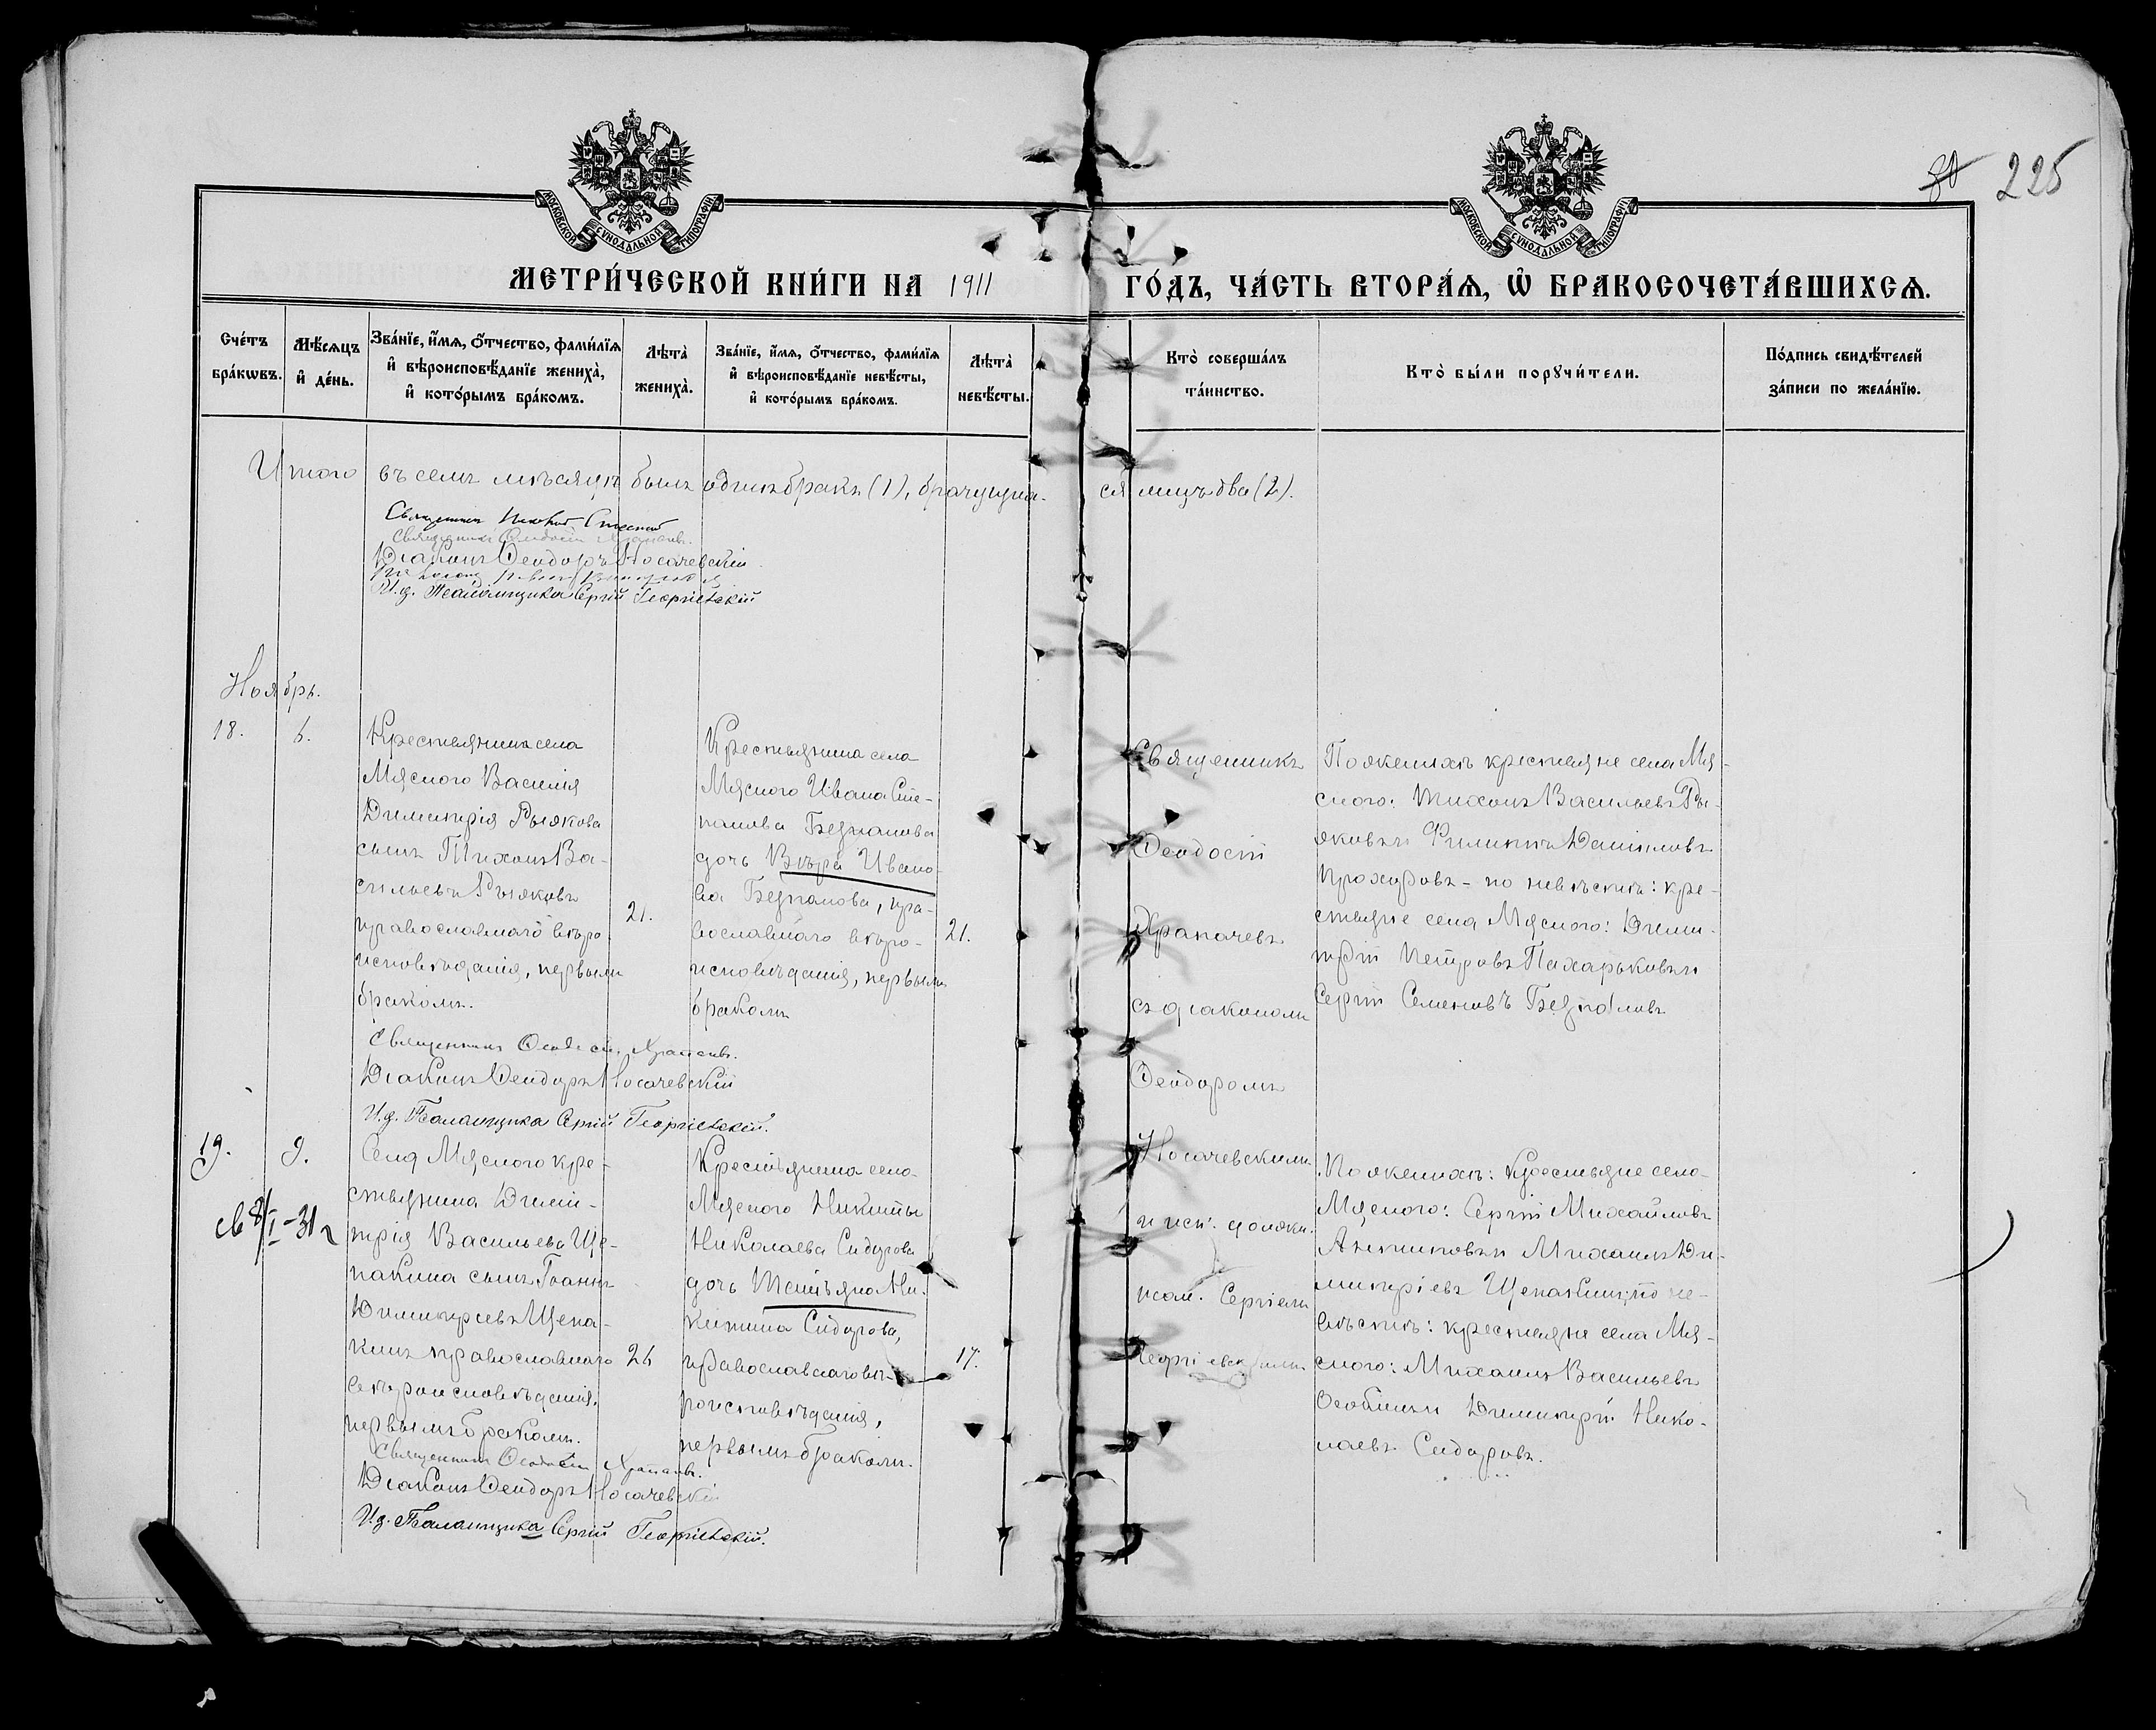 80 225
МОСКОВСКОЙ СѴНОДАЛЬНОЙ ТИПОГРАФІИ
МОСКОВСКОЙ СѴНОДАЛЬНОЙ ТИПОГРАФІИ
МЕТРИ́ЧЕСКОЙ КНИ́ГИ НА 1911 ГО́ДЪ, ЧА́СТЬ ВТОРА́Я, Ѡ БРАКОСОЧЕТА́ВШИХСЯ.
Сче́тъ
бра́кωвъ.
Мѣ́сяцъ
и де́нь.
Зва́нїе, и́мя, о́тчество, фами́лїя
и вѣроисповѣ́данїе жениха̀,
и кото́рымъ бра́комъ.
Лѣта̀
жениха̀.
Зва́нїе, и́мя, о́тчество, фами́лїя
и вѣроисповѣ́данїе невѣ́сты,
и кото́рымъ бра́комъ.
Лѣта̀
невѣ́сты.
Кто̀ соверша́лъ
та́инство.
Кто̀ бы́ли порꙋчи́тели.
По́дпись свидѣ́телей
за́писи по жела́нїю.
Итого въ семъ мѣсяцѣ былъ одинъ бракъ (1), брачущих-
ся лицъ два (2).
Священникъ
Священникъ Ѳеодосій
Діаконъ Ѳеодоръ Носачевскій
И.д. Псаломщика Сергій Георгіевскій
Ноябрь.
18.
6.
Крестьянина села
Мясного Василія
Димитрія Рыякова
сынъ Тихонъ Ва-
сильевъ Рыяковъ
православнаго вѣро-
исповѣданія, первымъ
бракомъ.
21.
Крестьянина села
Мясного Ивана Сте-
панова Безпалова
дочь Вѣра Ивано-
ва Безпалова, пра-
вославнаго вѣро-
исповѣданія, первымъ
бракомъ
21.
Священникъ
Ѳеодосій
Храпачевъ
съ діакономъ
Ѳеодоромъ
Носачевскимъ
и исп. должн.
псал. Сергіемъ
Георгіевскимъ
По женихѣ крестьяне села Мя-
сного: Тихонъ Васильевъ Ры-
яковъ и Филиппъ Даниловъ
Прохоровъ - по невѣстѣ: кре-
стьяне села Мясного: Дими-
трій Петровъ Пахарьковъ и
Сергій Семеновъ Безпаловъ
Священникъ Ѳеодосій
Діаконъ Ѳеодоръ Носачевскій
И.д. Псаломщика Сергій Георгіевскій.
19.
9.
св 8/I-31 г
Села Мясного кре-
стьянина Дими-
трія Васильева Ще-
пакина сынъ Іоаннъ
Димитріевъ Щепа-
кинъ православнаго
вѣроисповѣданія,
первымъ бракомъ.
26
Крестьянина села
Мясного Никиты
Николаева Сидорова
дочь Татьяна Ни-
китина Сидорова,
православнаго вѣ-
роисповѣданія,
первымъ бракомъ.
17.
По женихѣ: крестьяне села
Мясного: Сергій Михайловъ
Антиповъ и Михаилъ Ди-
митріевъ Щепакинъ; по не-
вѣстѣ: крестьяне села Мя-
сного: Михаилъ Васильевъ
Димитрій Нико-
лаевъ Сидоровъ.
Священникъ Ѳеодосій
Діаконъ Ѳеодоръ Носачевскій
И.д. Псаломщика Сергій Георгіевскій.